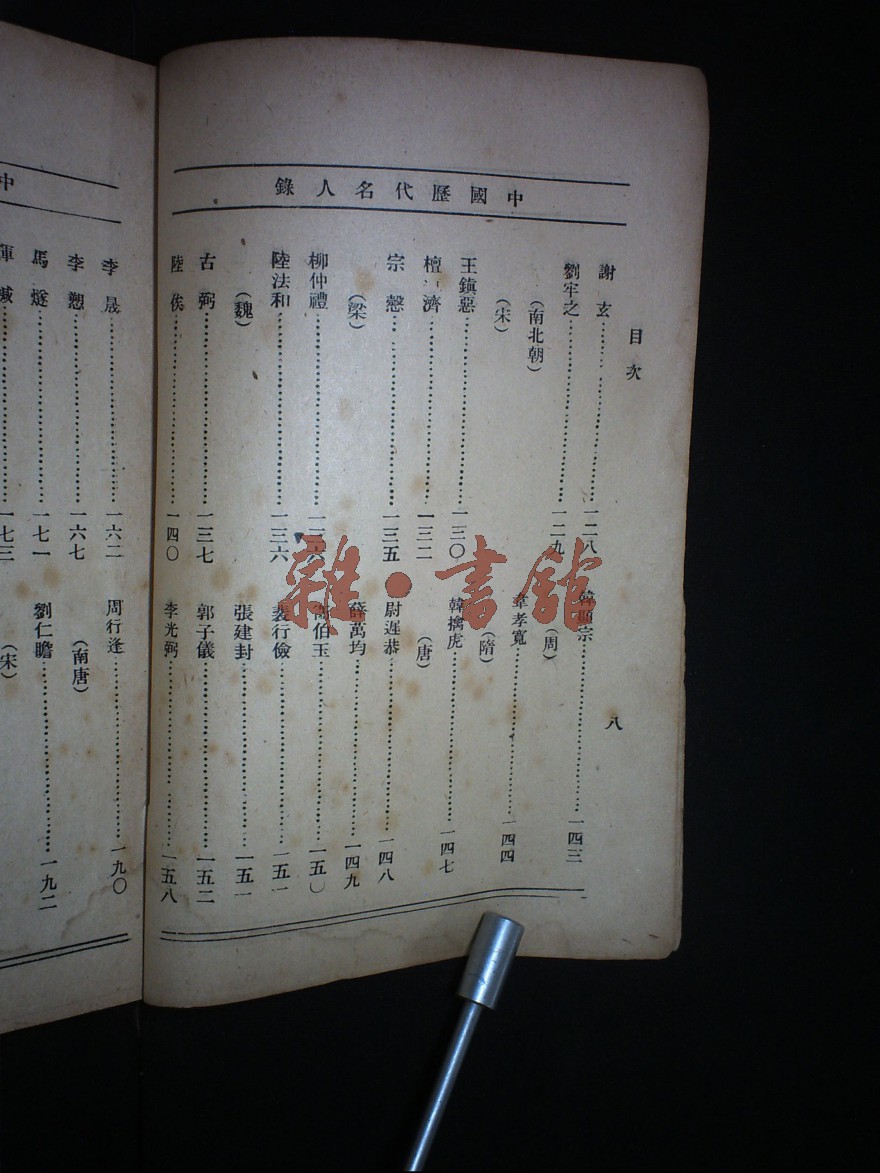 中國歷代名人錄
目次 八
謝玄……一二八
劉牢之……一二九
（南北朝）
（宋）
王鎭惡……一三〇
檀濟……一三二
宗慤……一三五
（梁）
柳仲禮……一三六
陸法和……一三六
（魏）
古弼……一三七
陸俟……一四〇
韓顯宗……一四三
（周）
韋孝寬……一四四
（隋）
韓擒虎……一四七
（唐）
尉遲恭……一四八
薛萬均……一四九
衛伯玉……一五〇
裴行儉……一五一
張建封……一五一
郭子儀……一五二
李光弼……一五八
中
李晟……一六二
李愬……一六七
馬燧……一七一
渾瑊……一七三
周行逢……一九〇
（南唐）
劉仁瞻……一九二
（宋）
雜·書館